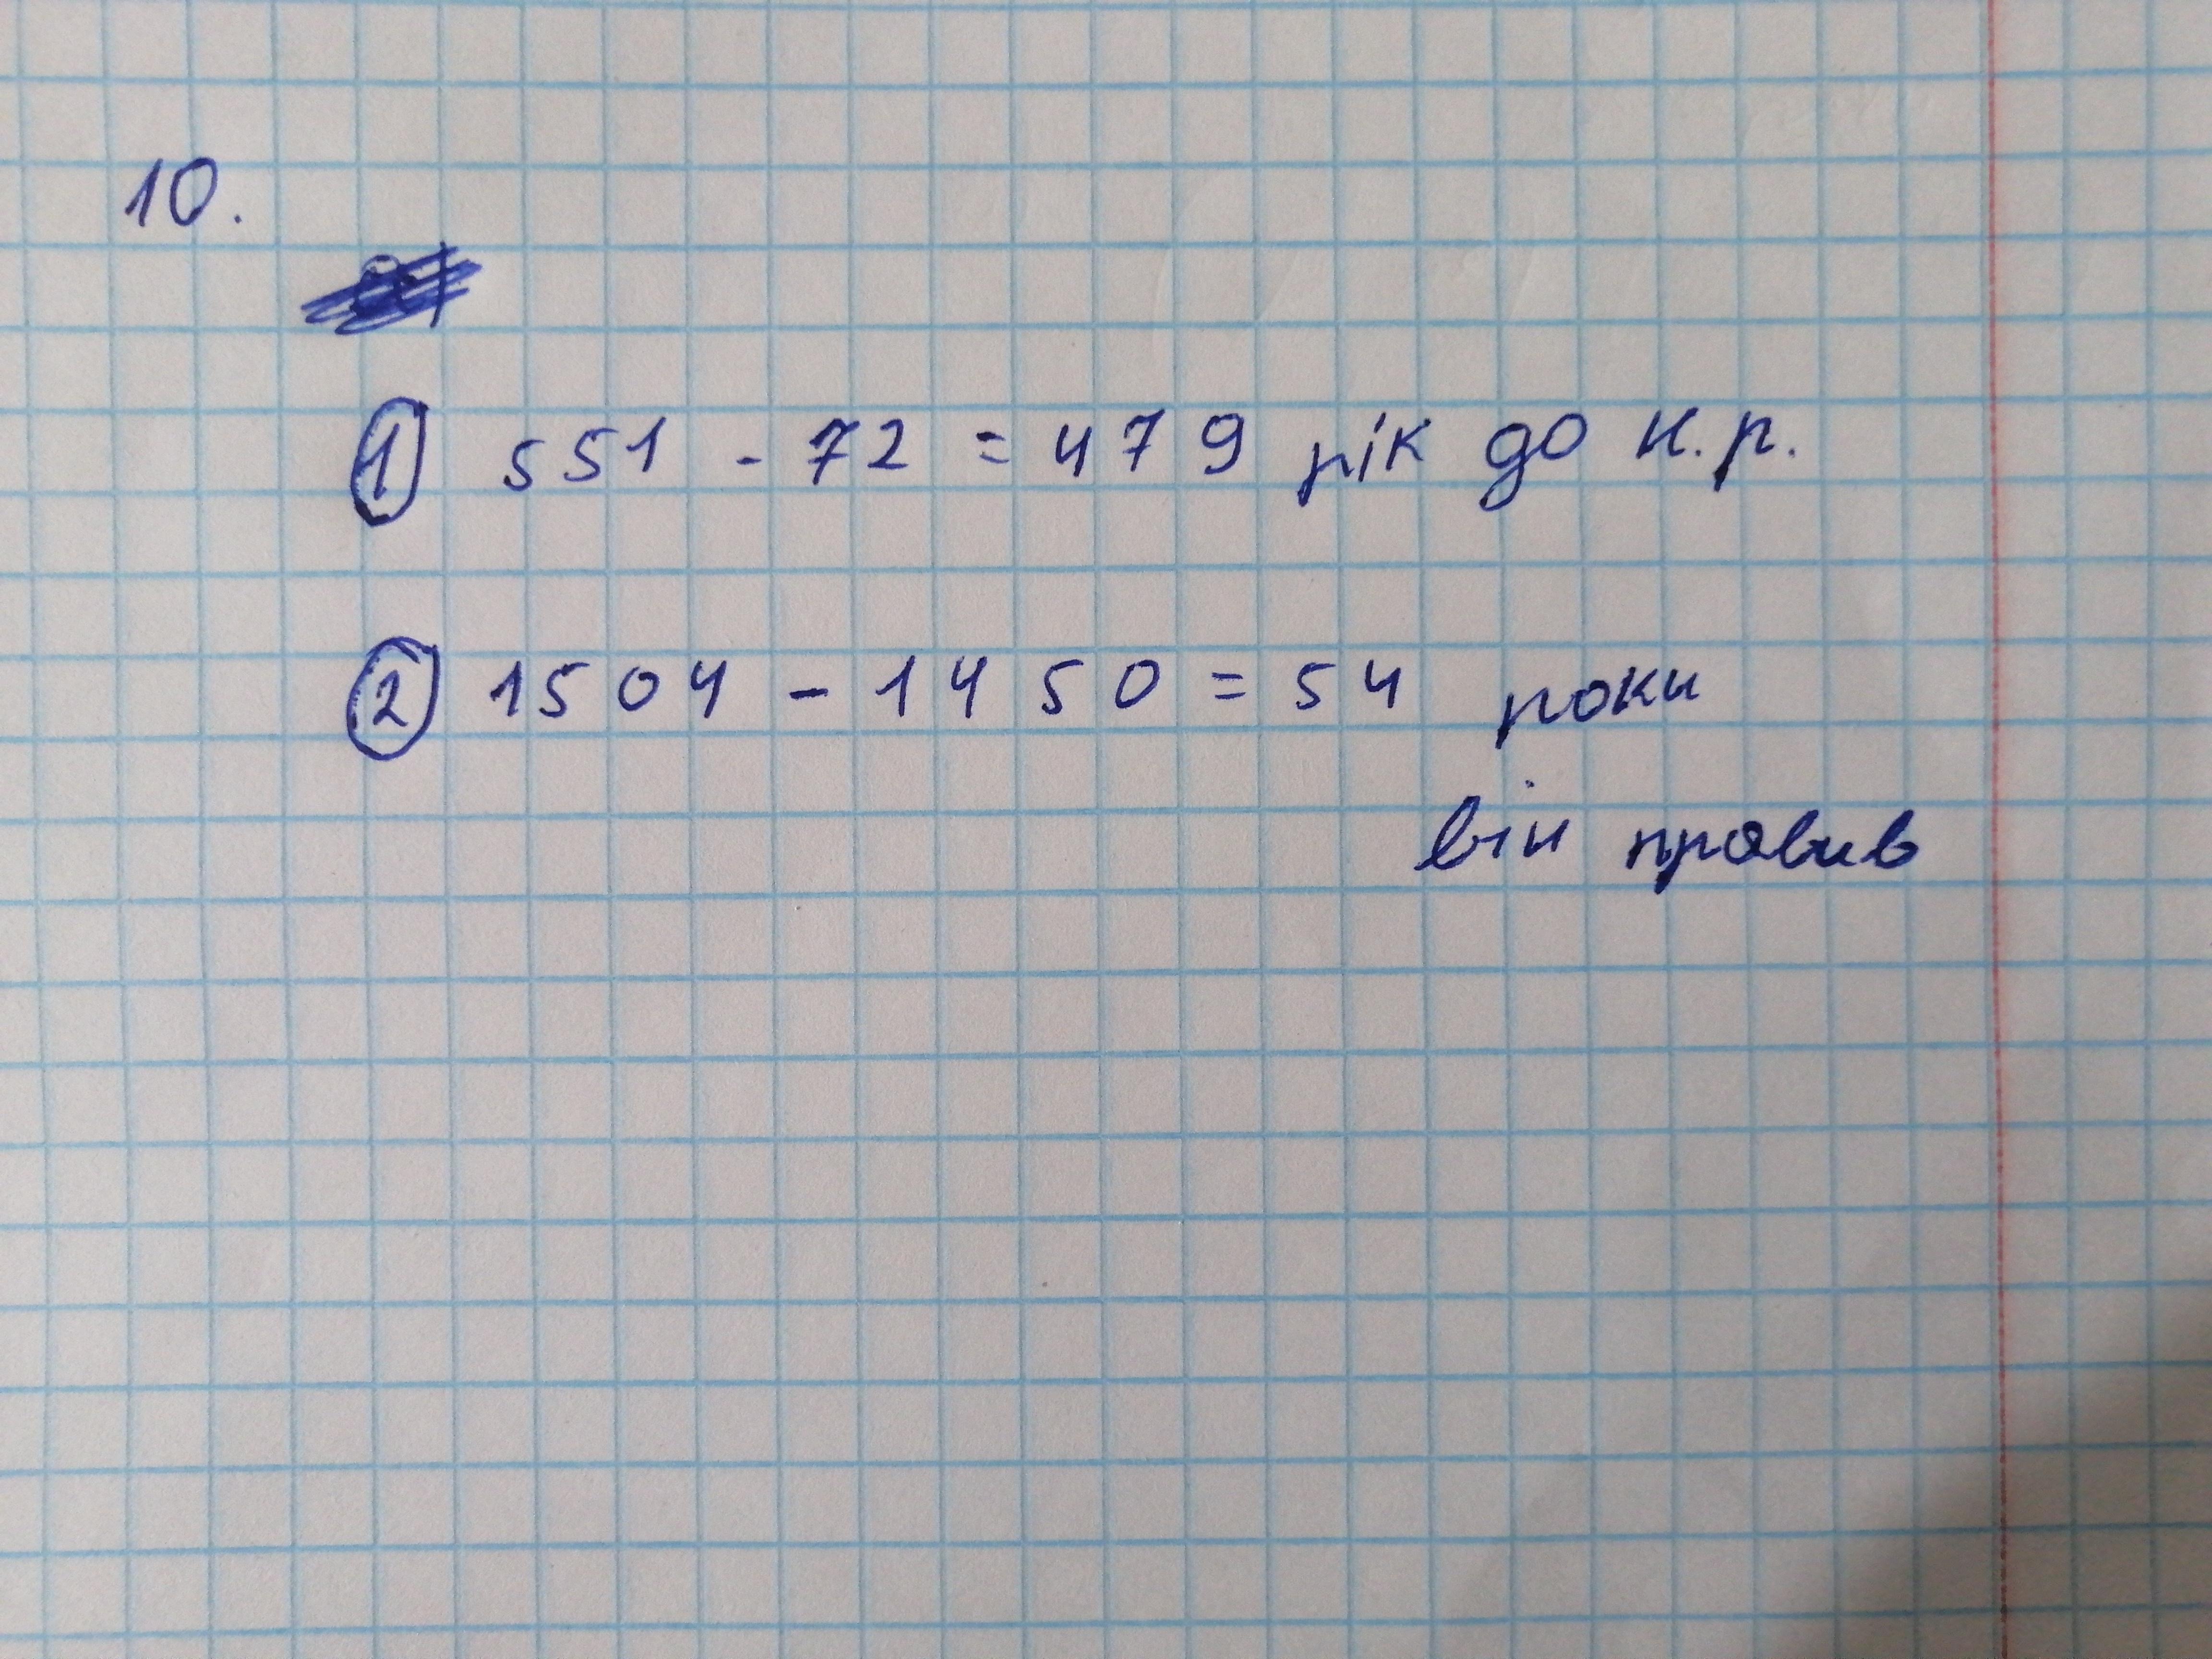 10.
1 551 - 72 = 479 рік до н.р.
2 1504 - 1450 = 54 роки
він правив